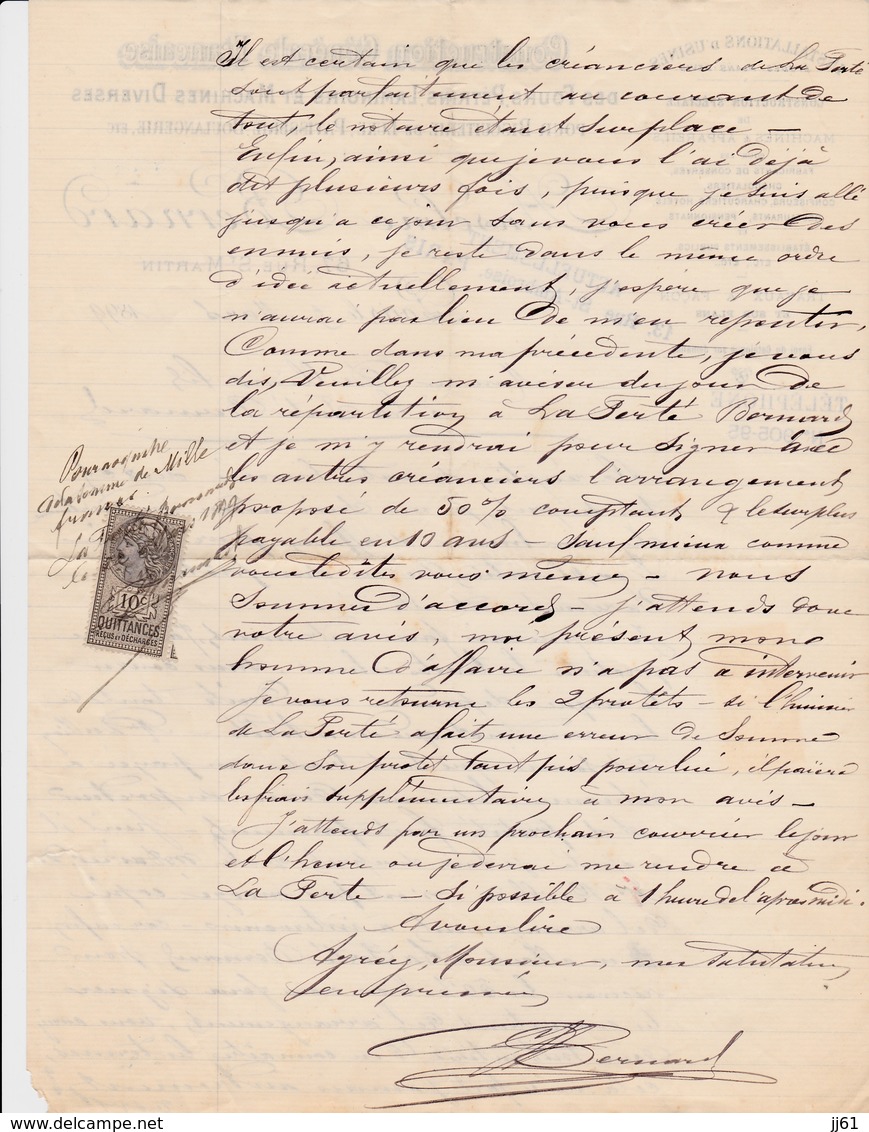 Il est certain que les créanciers de La Ferté
sont parfaitement au courant de
tout, le notaire étant sur place —
Enfin, ainsi que je vous l'ai déjà
dit plusieurs fois, puisque je suis allé
jusqu'a ce jour sans vous créer des
ennuis, je reste dans le même ordre
d'idée actuellement, j'espère que je
n'aurai pas lieu de m'en repentir.
Comme dans ma précédente, je vous
dis, Veuillez m'aviser du jour de
la répartition à La Ferté Bernard
et je m'y rendrai pour signer avec
les autres créanciers l'arrangement
proposé de 50% comptant & le surplus
payable en 10 ans — Sauf mieux comme
vous le dites vous même — nous
sommes d'accord — j'attends donc
votre avis, moi présent mon
homme d'affaire n'a pas à intervenir
Je vous retourne les 2 protêts — si l'huissier
de La Ferté a fait une erreur de somme
dans son protet tant pis pour lui, il paiera
les frais supplémentaires à mon avis —
J'attends par un prochain courrier le jour
et l'heure ou je devrai me rendre à
La Ferte — si possible à 1 heure de l'apres midi.
A vous lire
Agréez, Monsieur, mes salutations
empressées
Bernard
Pour
a la somme de Mille
francs
La Bernard
10c
QUITTANCES
REÇUS ET DÉCHARGES
jj61